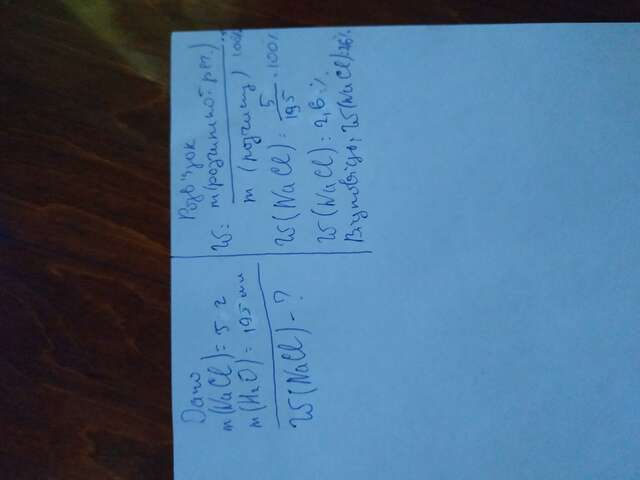 Дано
m(NaCl) = 5 г
m(H₂O) = 195 мл
W(NaCl) - ?
Розв'язок
W = m(розчиненої реч.)
m (розчину) 100%
W(NaCl) = 5/195 · 100%
W(NaCl) = 2,6 %
Відповідь: W(NaCl) 2,6%